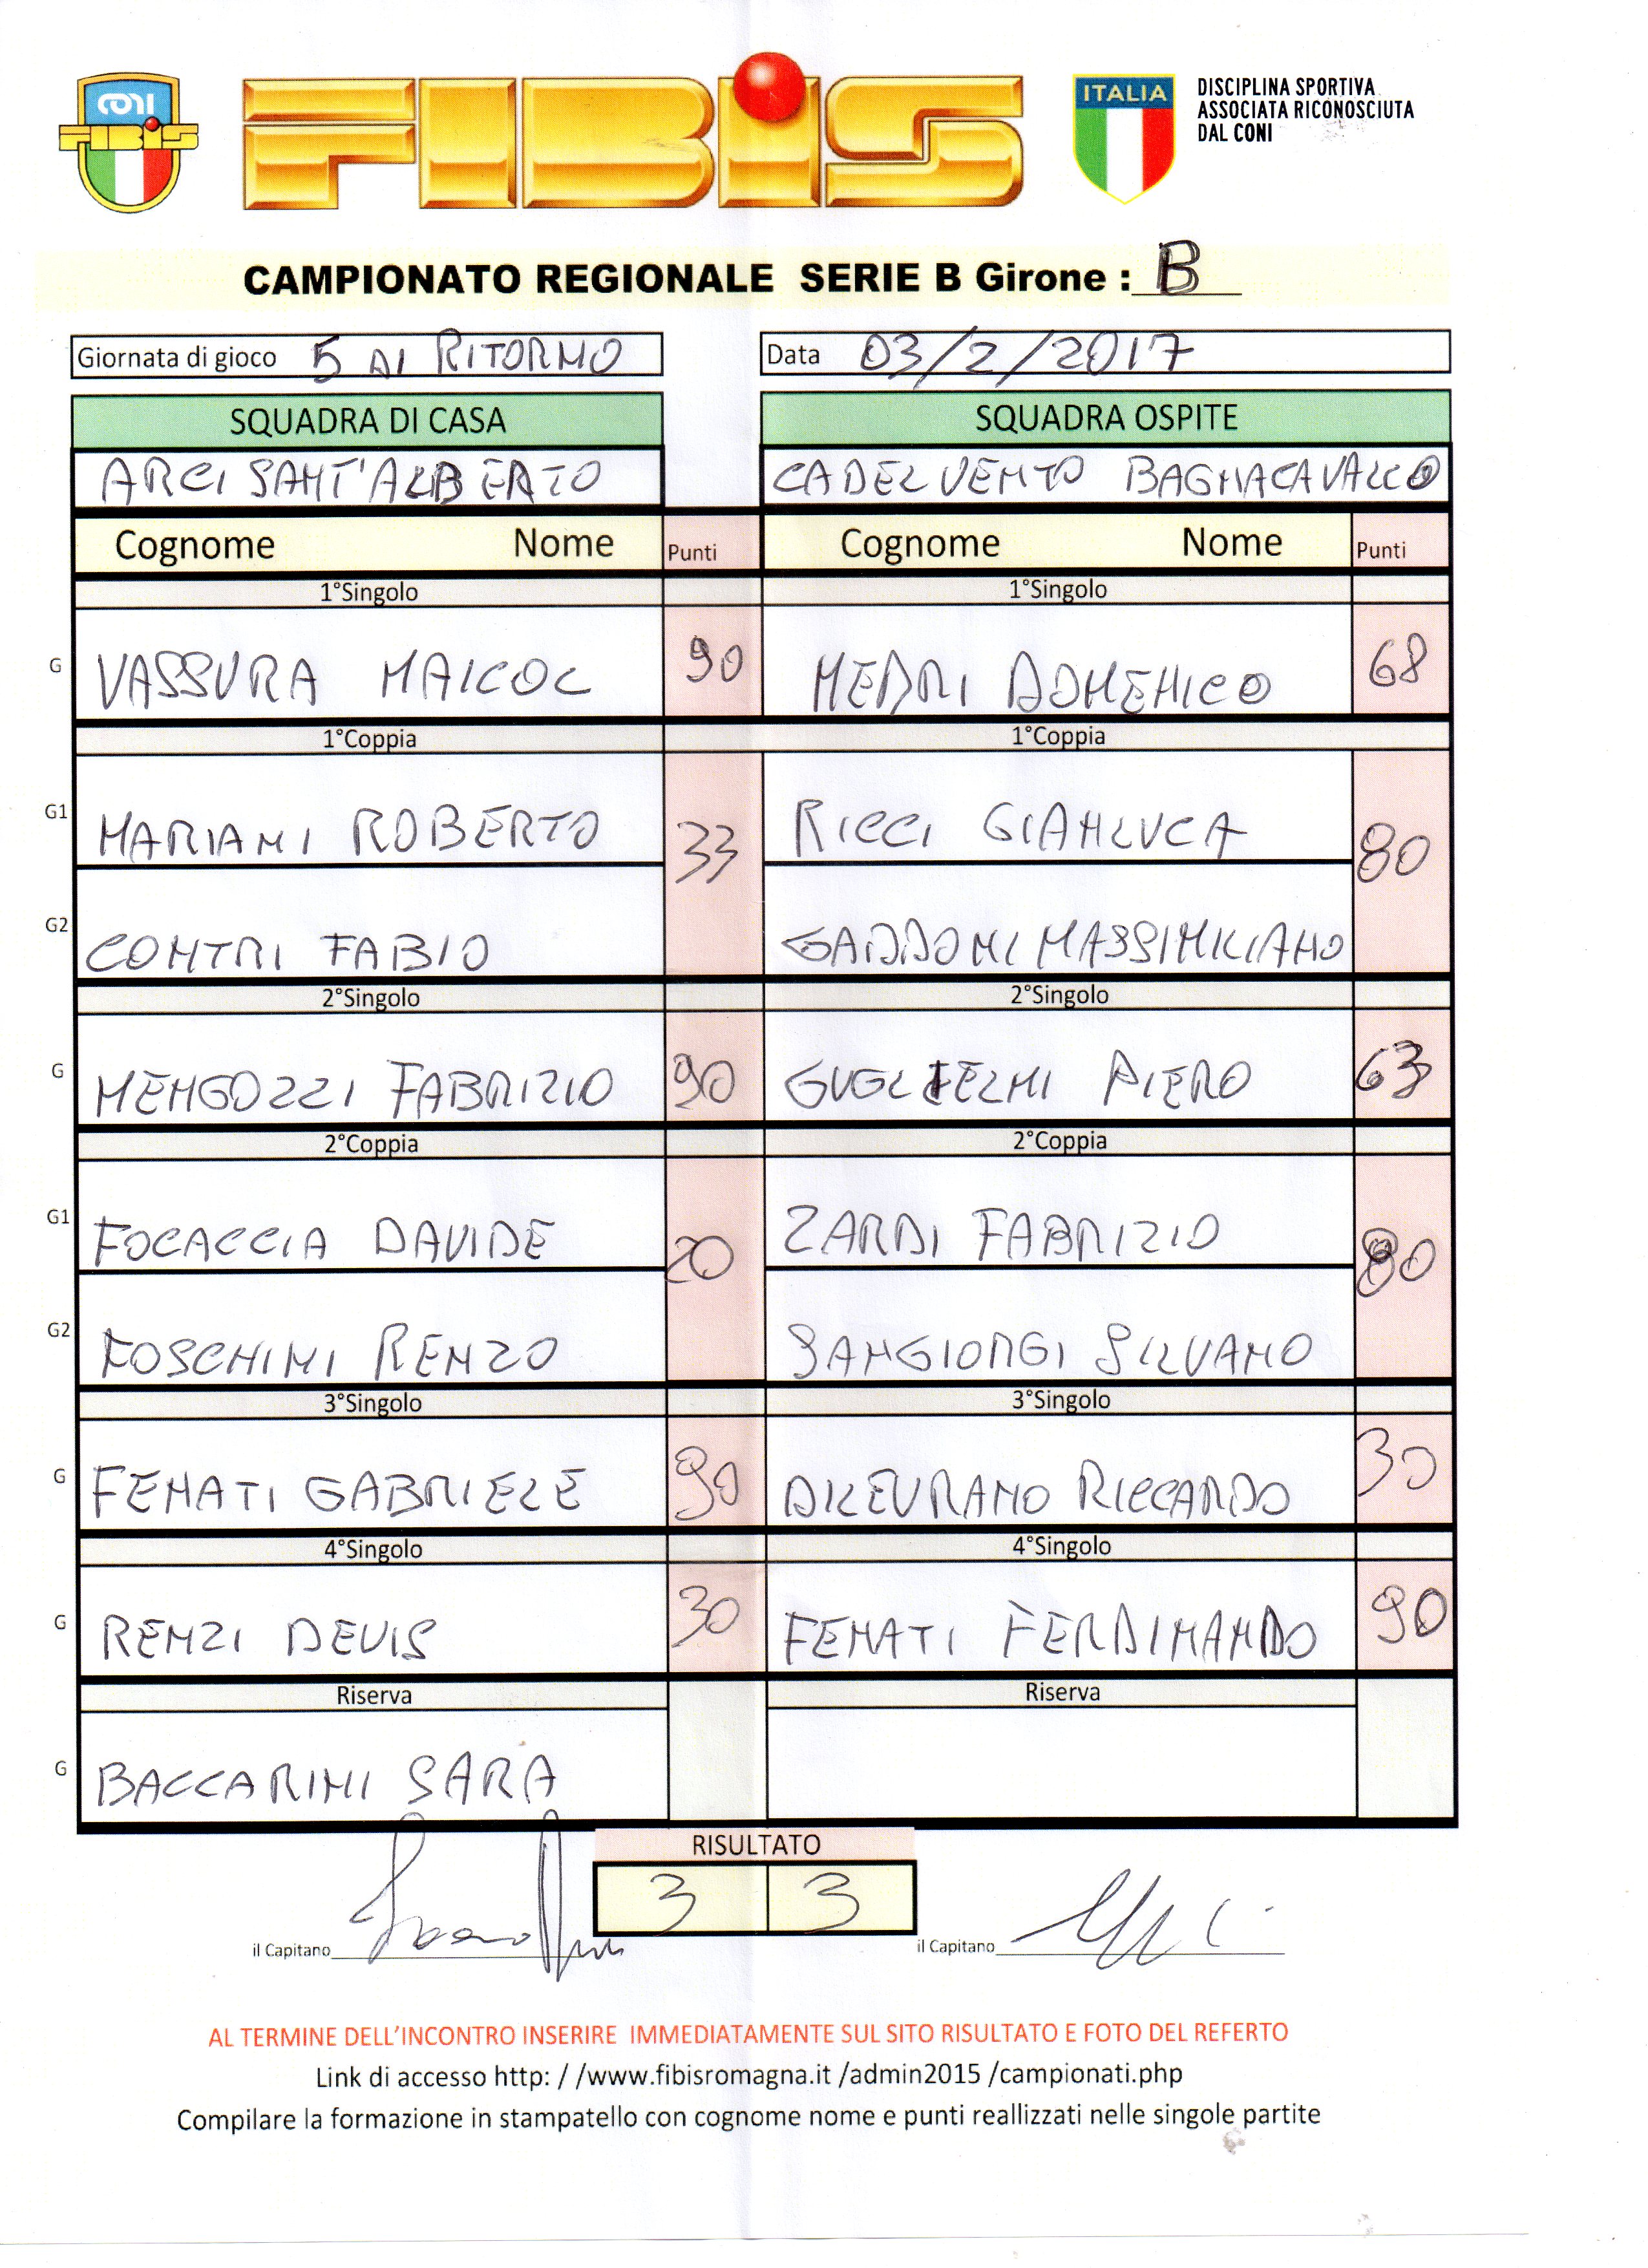 CONI
FIBiS
FIBiS
ITALIA
DISCIPLINA SPORTIVA
ASSOCIATA RICONOSCIUTA
DAL CONI
CAMPIONATO REGIONALE SERIE B Girone : B
Giornata di gioco 5 DI RITORNO Data 03/2/2017
SQUADRA DI CASA SQUADRA OSPITE
ARCI SANT'ALBERTO CADELVENTO BAGNACAVALLO
Cognome Nome Punti Cognome Nome Punti
1°Singolo 1°Singolo
G VASSURA MAICOL 90 MEDRI DOMENICO 68
1°Coppia 1°Coppia
G1 MARIANI ROBERTO 33 RICCI GIANLUCA 80
G2 CONTRI FABIO GADDONI MASSIMILIANO
2°Singolo 2°Singolo
G MENGOZZI FABRIZIO 90 GUGLIELMI PIERO 63
2°Coppia 2°Coppia
G1 FOCACCIA DAVIDE 20 ZARDI FABRIZIO 80
G2 FOSCHINI RENZO SANGIORGI SILVANO
3°Singolo 3°Singolo
G FENATI GABRIELE 90 DILEVRANO RICCARDO 30
4°Singolo 4°Singolo
G RENZI DEVIS 30 FENATI FERDINANDO 90
Riserva Riserva
G BACCARINI SARA
RISULTATO
3 3
il Capitano il Capitano
AL TERMINE DELL'INCONTRO INSERIRE IMMEDIATAMENTE SUL SITO RISULTATO E FOTO DEL REFERTO
Link di accesso http: / /www.fibisromagna.it /admin2015 /campionati.php
Compilare la formazione in stampatello con cognome nome e punti reallizzati nelle singole partite